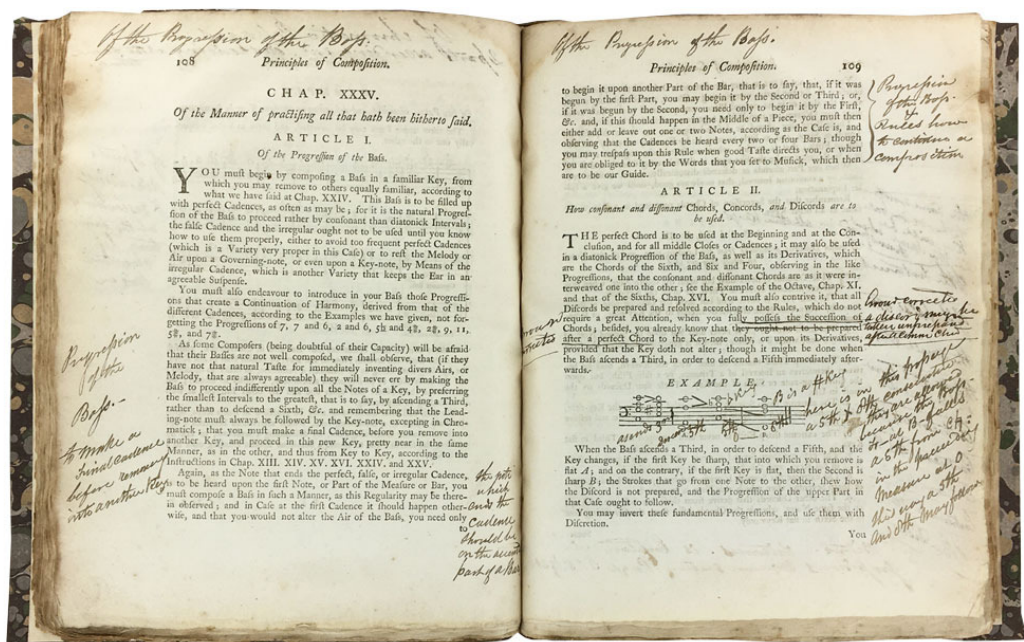 Of the Progression of the Bass.
108 Principles of Composition.
CHAP. XXXV.
Of the Manner of practising all that hath been hitherto said.
ARTICLE I.
Of the Progression of the Bass.
YOU must begin by composing a Bass in a familiar Key, from
which you may remove to others equally familiar, according to
what we have said at Chap. XXIV. This Bass is to be filled up
with perfect Cadences, as often as may be; for it is the natural Progres-
sion of the Bass to proceed rather by consonant than diatonick Intervals;
the false Cadence and the irregular ought not to be used until you know
how to use them properly, either to avoid too frequent perfect Cadences
(which is a Variety very proper in this Case) or to rest the Melody or
Air upon a Governing-note, or even upon a Key-note, by Means of the
irregular Cadence, which is another Variety that keeps the Ear in an
agreeable Suspense.
You must also endeavour to introduce in your Bass those Progressi-
ons that create a Continuation of Harmony, derived from that of the
different Cadences, according to the Examples we have given, not for-
getting the Progressions of 7, 7 and 6, 2 and 6, 9, 11,
As some Composers (being doubtful of their Capacity) will be afraid
that their Basses are not well composed, we shall observe, that (if they
have not that natural Taste for immediately inventing divers Airs, or
Melody, that are always agreeable) they will never err by making the
Bass to proceed indifferently upon all the Notes of a Key, by preferring
the smallest Intervals to the greatest, that is to say, by ascending a Third,
rather than to descend a Sixth, &c. and remembering that the Lead-
ing-note must always be followed by the Key-note, excepting in Chro-
matick; that you must make a final Cadence, before you remove into
another Key, and proceed in this new Key, pretty near in the same
Manner, as in the other, and thus from Key to Key, according to the
Instructions in Chap. XIII. XIV. XV. XVI. XXIV. and XXV.
Again, as the Note that ends the perfect, false, or irregular Cadence,
is to be heard upon the first Note, or Part of the Measure or Bar, you
must compose a Bass in such a Manner, as this Regularity may be there-
in observed; and in Case at the first Cadence it should happen other-
wise, and that you would not alter the Air of the Bass, you need only
to
Progression
of the
Bass.-
to make a
Final Cadence
before removing
into another Key
the note
which
ends the
Cadence
should be
on the accen
part of a Bar
Of the Progression of the Bass.
Principles of Composition. 109
to begin it upon another Part of the Bar, that is to say, that, if it was
begun by the first Part, you may begin it by the Second or Third; or,
if it was begun by the Second, you need only to begin it by the First,
&c. and, if this should happen in the Middle of a Piece, you must then
either add or leave out one or two Notes, according as the Case is, and
observing that the Cadences be heard every two or four Bars; though
you may trespass upon this Rule when good Taste directs you, or when
you are obliged to it by the Words that you set to Musick, which then
are to be our Guide.
Progression
of the Bass.
&
Rules how
to continue a
composition
ARTICLE II.
How consonant and dissonant Chords, Concords, and Discords are to
be used.
THE perfect Chord is to be used at the Beginning and at the Con-
clusion, and for all middle Closes or Cadences; it may also be used
in a diatonick Progression of the Bass, as well as its Derivatives, which
are the Chords of the Sixth, and Six and Four, observing in the like
Progressions, that the consonant and dissonant Chords are as it were in-
terweaved one into the other; see the Example of the Octave, Chap. XI.
and that of the Sixths, Chap. XVI. You must also contrive it, that all
Discords be prepared and resolved according to the Rules, which do not
require a great Attention, when you fully possess the Succession of
Chords; besides, you already know that they ought not to be prepared
after a perfect Chord to the Key-note only, or upon its Derivatives,
provided that the Key doth not alter; though it might be done when
the Bass ascends a Third, in order to descend a Fifth immediately after-
wards.
a discord may be
taken unprepared
EXAMPLE.
B is a # Key
ascends
here is in this
a 5th & 8th consecutive
because the Bass
falls
a 5th from
in the
Measure at
this way a 5th
and 8th may follow
When the Bass ascends a Third, in order to descend a Fifth, and the
Key changes, if the first Key be sharp, that into which you remove is
flat A; and on the contrary, if the first Key is flat, then the Second is
sharp B; the Strokes that go from one Note to the other, shew how
the Discord is not prepared, and the Progression of the upper Part in
that Case ought to follow.
You may invert these fundamental Progressions, and use them with
Discretion.
You